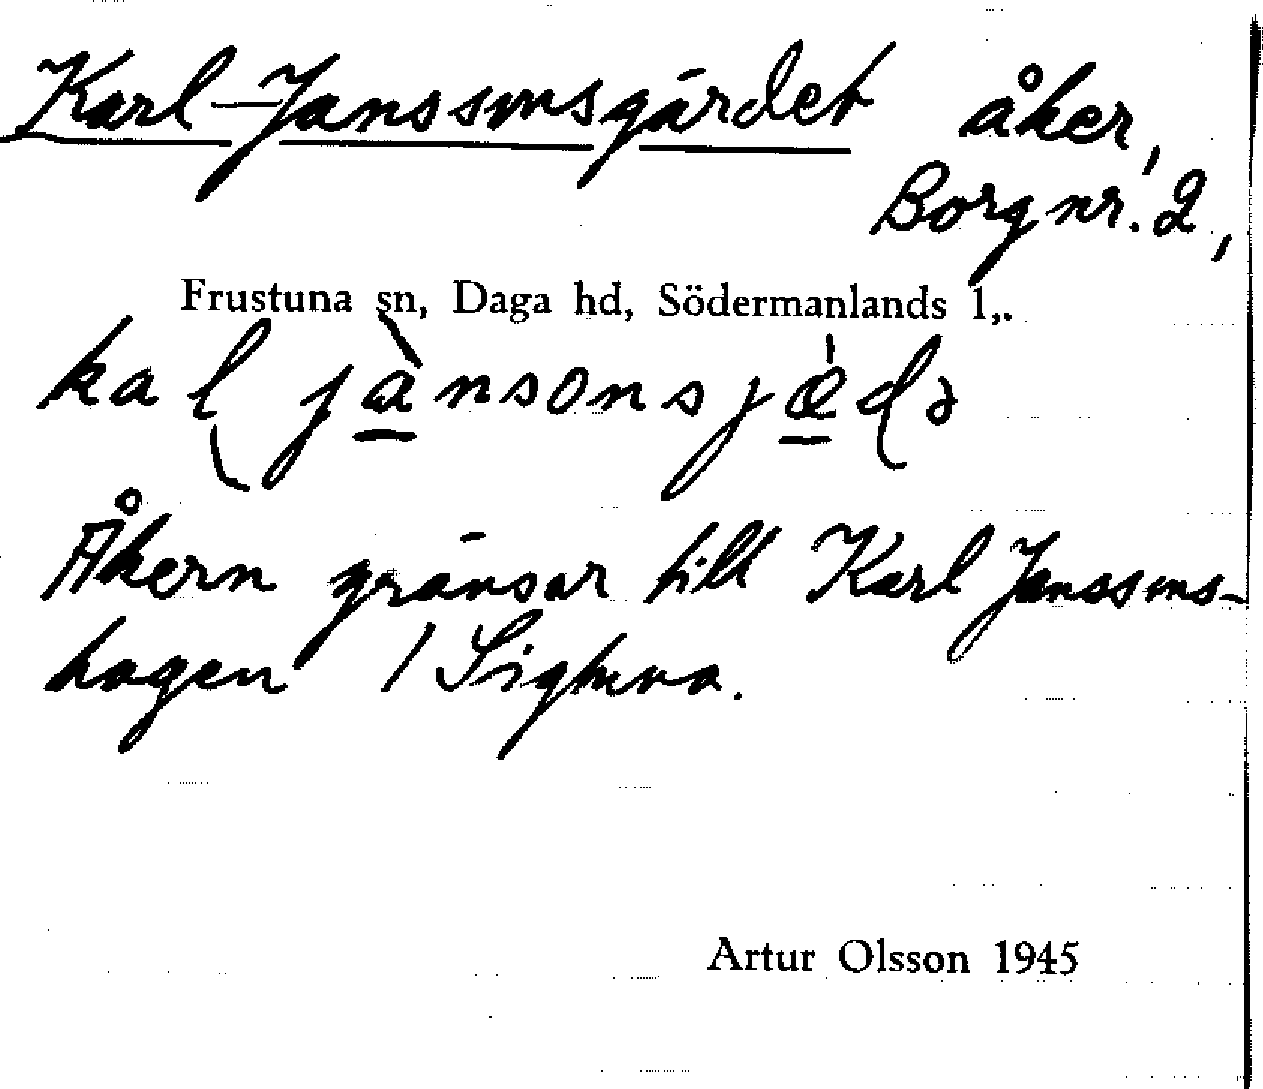 Karl-Janssonsgärdet åker,
Borg nr. 2,
Frustuna sn, Daga hd, Södermanlands l,.
kal jànsonsjæ̍də
Åkern gränsar till Karl Janssons-
hagen / Sigtuna.
Artur Olsson 1945